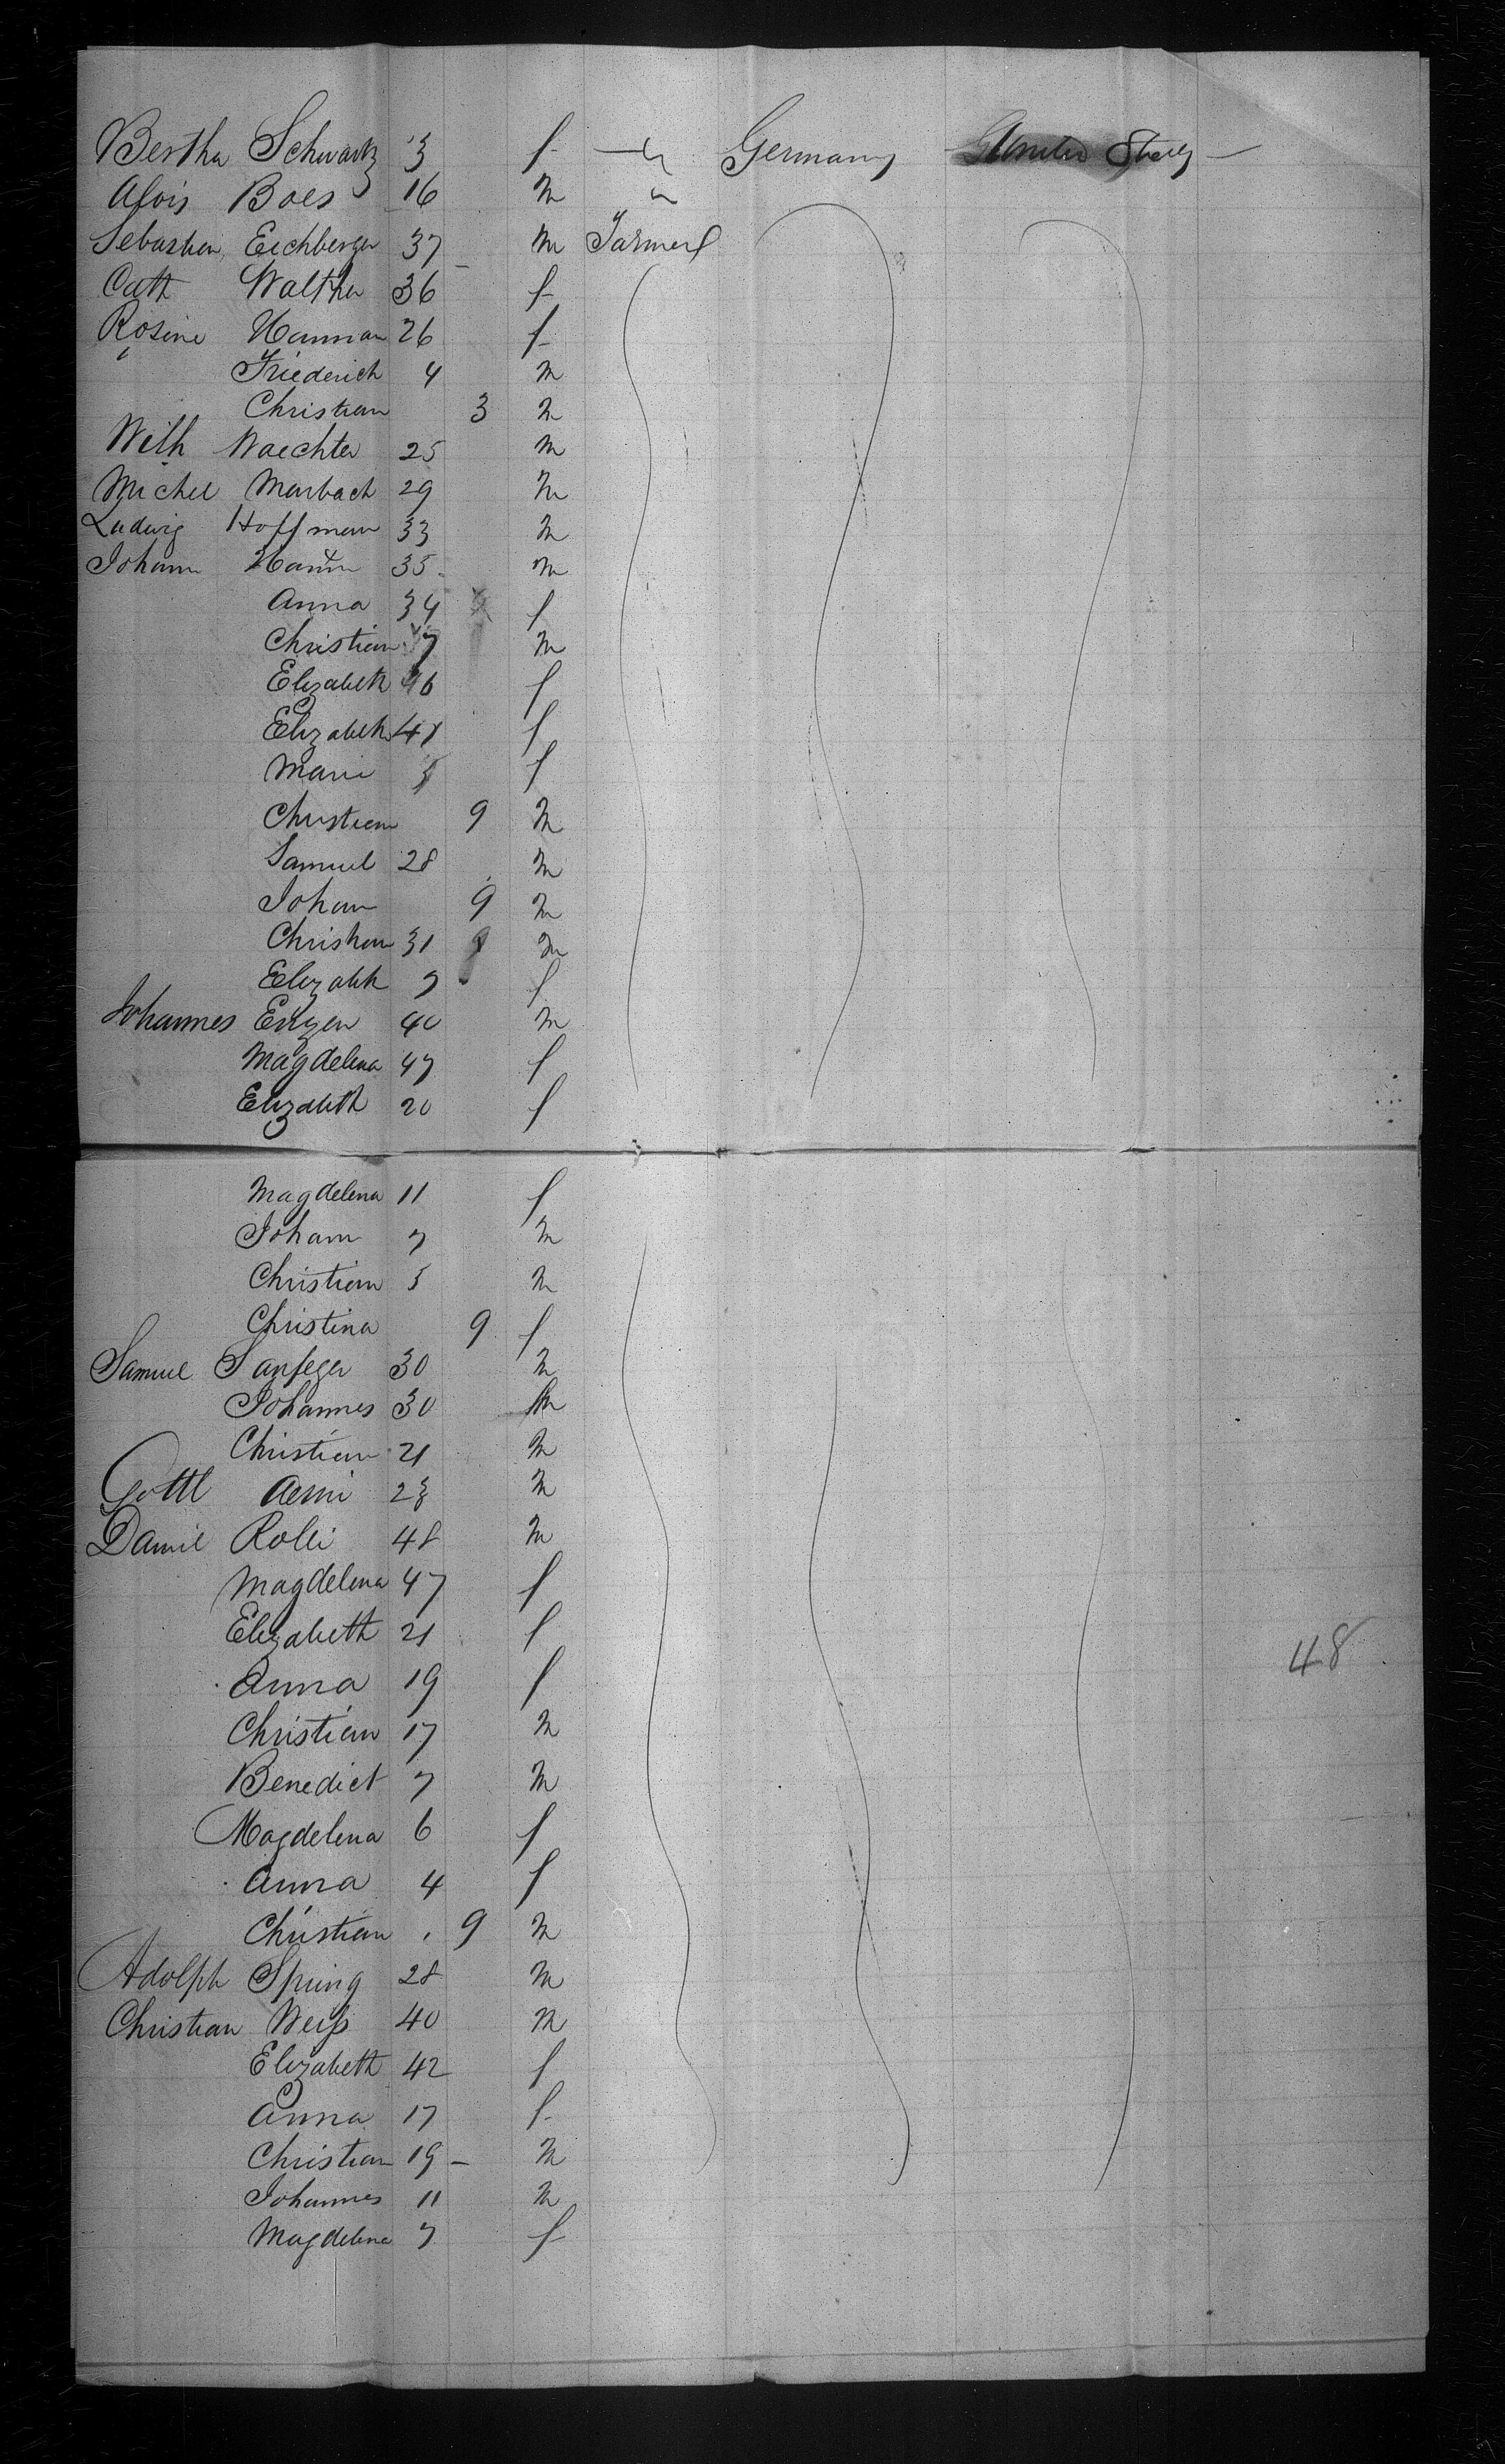 Bertha Schwartz 3 f — " Germany United States —
Alois Boes 16 m "
Sebastien Eichberger 37 m Farmer
Cath Walther 36 f
Rosine Hamman 26 f
Friederich 4 m
Christian 3 m
Wilh Waechter 25 m
Michel Marbach 29 m
Ludwig Hoffman 33 m
Johann 35 m
Anna 34 f
Christian 7 m
Elizabeth 46 f
Elizabeth f
Marie f
Christian 9 m
Samuel 28 m
Johann 9 m
Christian 31 m
Elizabth 7 f
Johannes 40 m
Magdelena 47 f
Elizabeth 20 f
Magdelena 11 f
Johann 7 m
Christian 5 m
Christina 9 f
Samuel 30 m
Johannes 30 m
Christian 21 m
Gottl Aerni 23 m
Daniel Rolli 48 m
Magdelena 47 f
Elizabeth 21 f
Anna 19 f
Christian 17 m
Benedict 7 m
48
Magdelena 6 f
Anna 4 f
Christian 9 m
Adolph Spring 28 m
Christian Weiß 40 m
Elizabeth 42 f
Anna 17 f
Christian 19 – m
Johannes 11 m
Magdelena 7 f